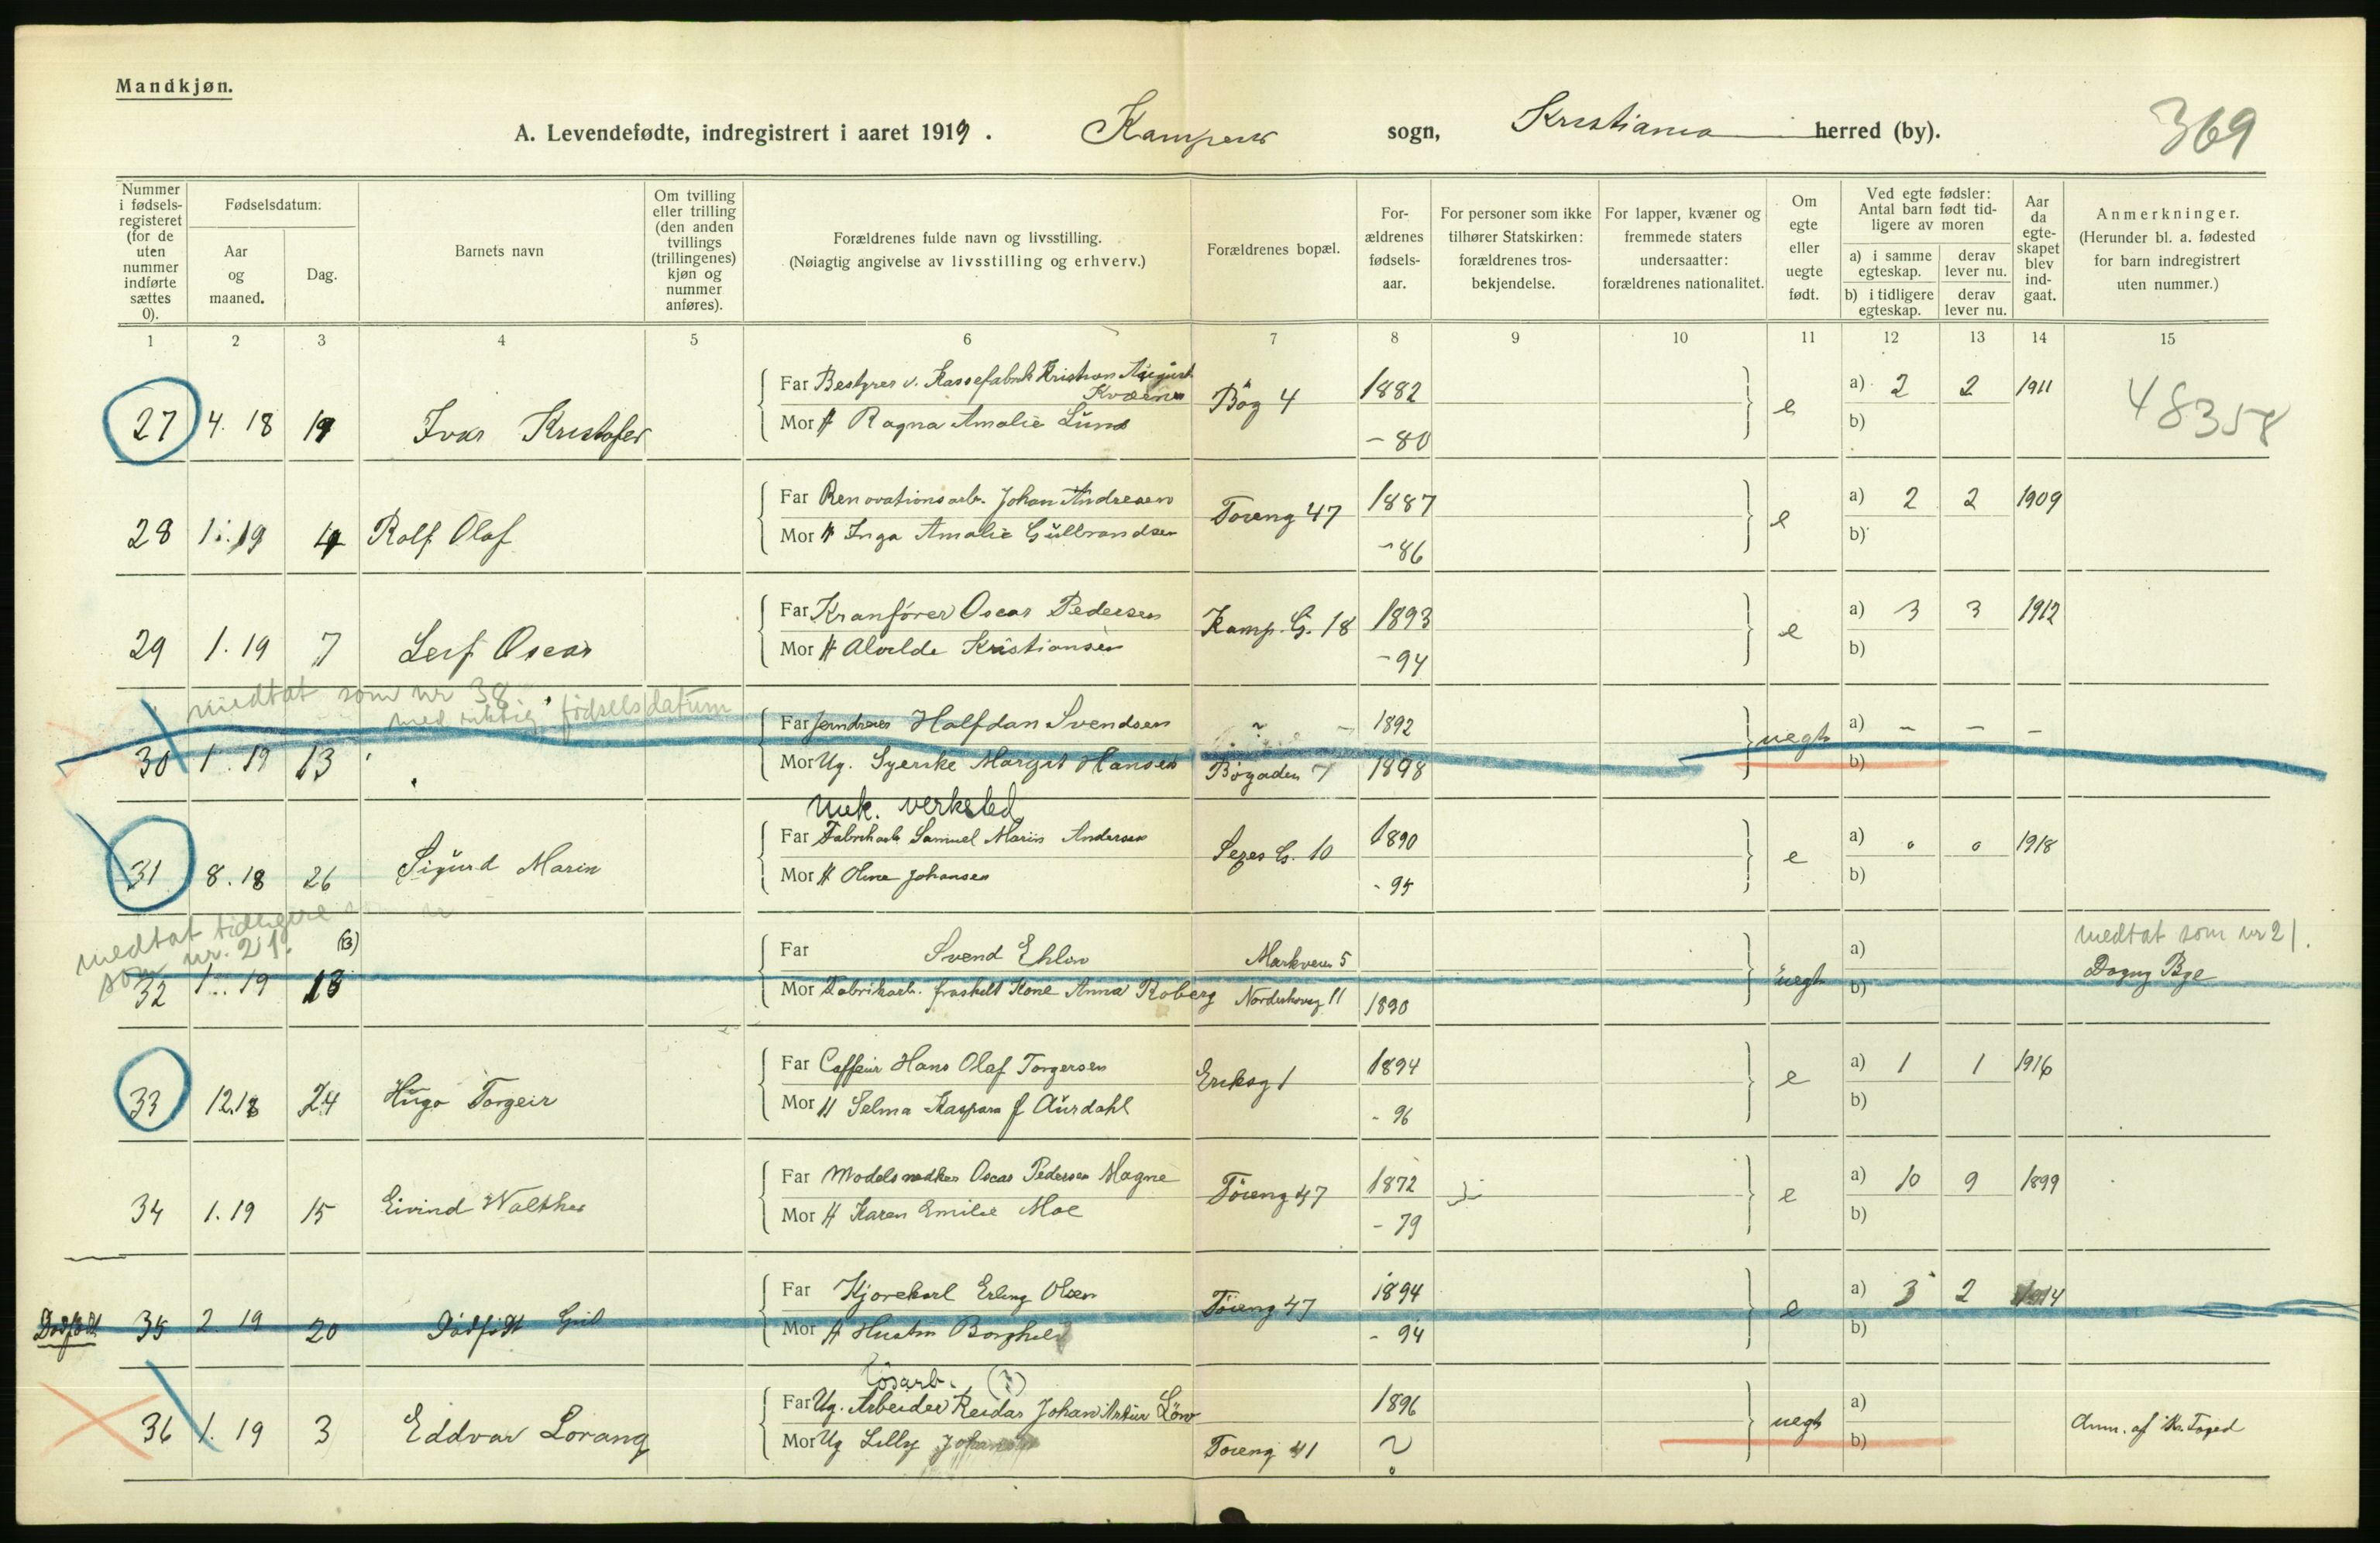 Mandkjøn.
A. Levendefødte, indregistrert i aaret 1919. Kampens sogn, Kristiania herred (by). 369
Nummer i fødsels-registeret (for de uten nummer indførte sættes 0).
Fødselsdatum:
Aar og maaned.
Dag.
Barnets navn
Om tvilling eller trilling (den anden tvillings (trillingenes) kjøn og nummer anføres).
Forældrenes fulde navn og livsstilling.
(Nøiagtig angivelse av livsstilling og erhverv.)
Forældrenes bopæl.
For-ældrenes fødsels-aar.
For personer som ikke tilhører Statskirken: forældrenes tros-bekjendelse.
For lapper, kvæner og fremmede staters undersaatter: forældrenes nationalitet.
Om egte eller uegte født.
Ved egte fødsler: Antal barn født tid-ligere av moren
a) i samme egteskap.
derav lever nu.
b) i tidligere egteskap.
derav lever nu.
Aar da egte-skapet blev ind-gaat.
Anmerkninger.
(Herunder bl. a. fødested for barn indregistrert uten nummer.)
1 2 3 4 5 6 7 8 9 10 11 12 13 14 15
Far Bestyrer v. Kassefabrik Kristian August
Kværne
27 4. 18 19 Ivar Kristofer Bøg 4 1882 e a) 2 2 1911 48358
Mor H Ragna Amalie Lund - 80 b)
Far Renovationsarb. Johan Andresen 1887 a) 2 2 1909
28 1. 19 4 Rolf Olaf Tøieng 47 e
Mor H Inga Amalie Gullbrandsen - 86 b)
Far Kranfører Oscar Pedersen 1893 a) 3 3 1912
29 1. 19 7 Leif Oscar Kamp. G. 18 e
Mor H Alvilde Kristiansen - 94 b)
medtat som nr 38
med riktig fødselsdatum
Far Jerndreier Halfdan Svendsen ? - 1892 a) - - -
30 1. 19 13 uegte
Mor Ug. Syerske Margit Hansen Bøgaden 7 1898 b)
mek. verksted
Far Fabrikarb Samuel Marin Andersen 1890 a) 0 0 1918
31 8. 18 26 Sigurd Marin G. 10 e
Mor H Oline Johansen - 95 b)
medtat tidligere
som nr. 21. (13)
medtat som nr 21.
Far Svend Ehlow Markveien 5 a)
32 1. 19 13 uegte Dagny Bye
Mor Fabrikarb. fraskilt Kone Anna Roberg Norderhovg 11 1890 b)
Far Caffeur Hans Olaf Torgersen 1894 a) 1 1 1916
33 12.18 24 Hugo Torgeir Eriksg 1 e
Mor H Selma Kaspara f Aurdahl - 96 b)
Far Modelsnedker Oscar Pedersen Magne 1872 a) 10 9 1899
34 1. 19 15 Eivind Walther Tøieng 47 e
Mor H Karen Emilie Moe - 79 b)
Far Kjørekarl Erling Olsen 1894 a) 3 2 1914
Dødfødt 35 2. 19 20 Dødfødt Tøieng 47 e
Mor H Borghild - 94 b)
Løsarb. (?)
Far Ug. Arbeider Reidar Johan Artur Löw 1896 a)
36 1. 19 3 Eddvar Lorang uegte Anm. af
Mor Ug Lilly Tøieng 41 ? b)